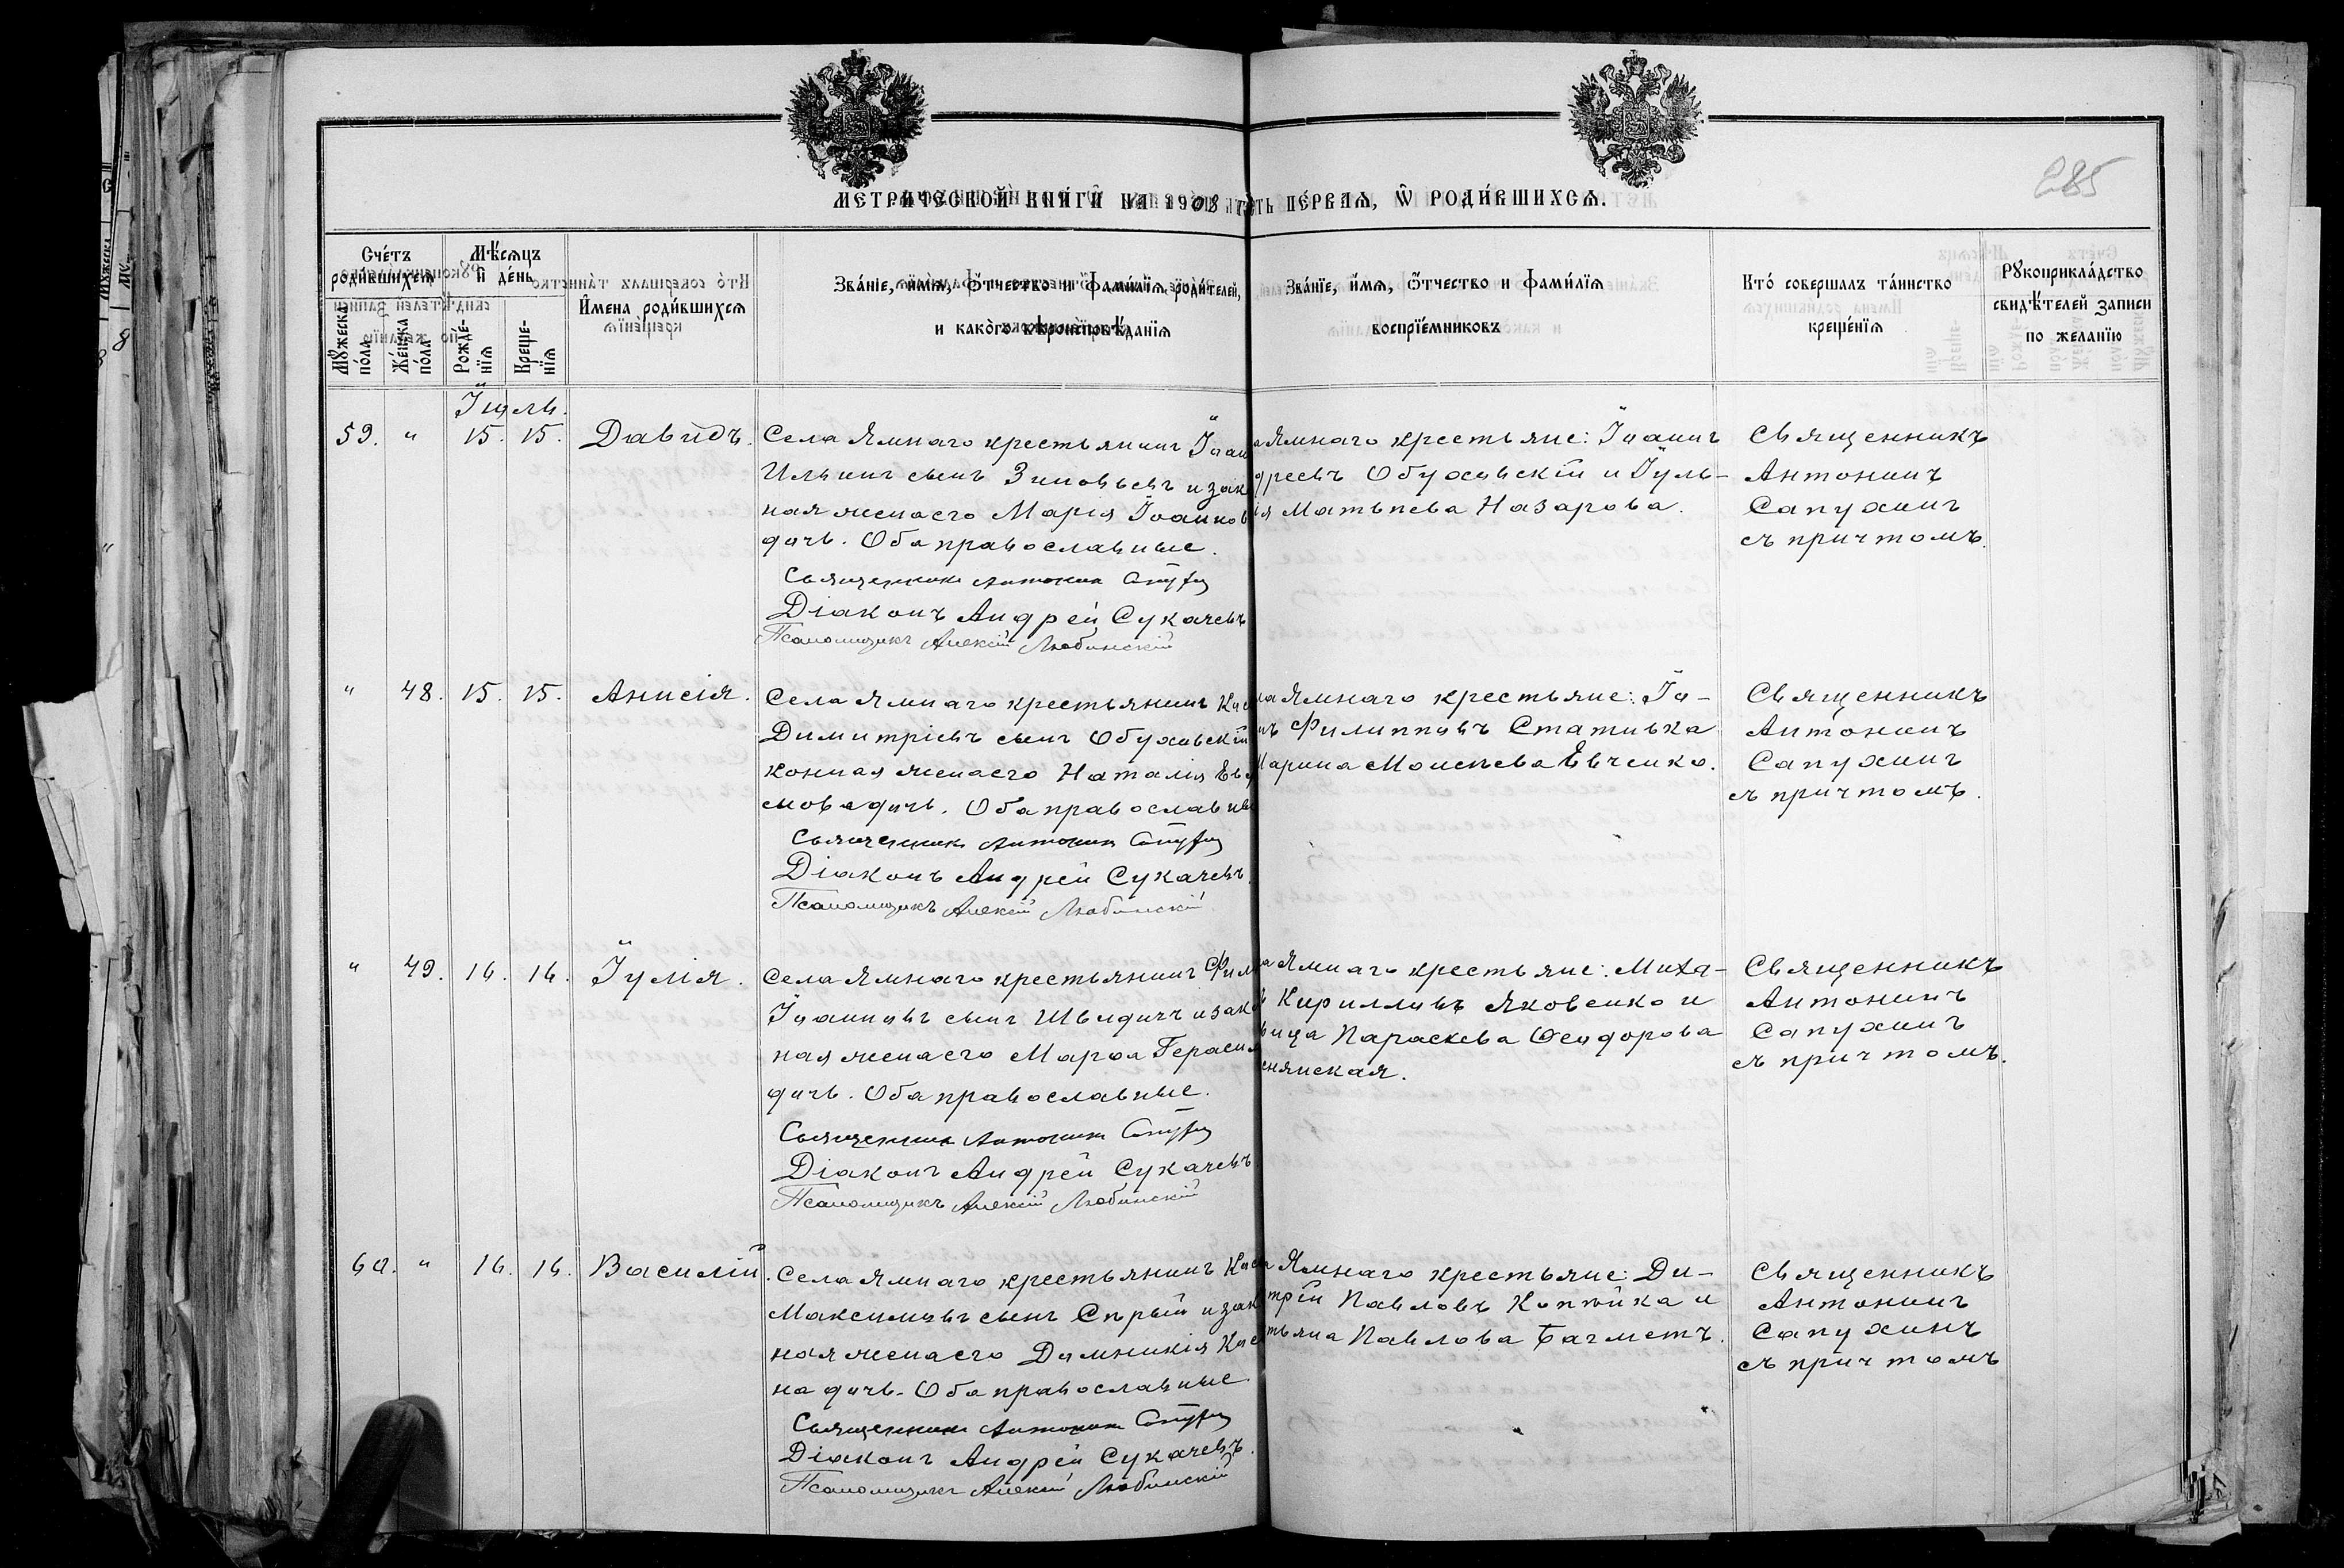 МЕТРИЧЕСКОЙ КНИГИ НА 1908 ГО
ЧАСТЬ ПЕРВАЯ, Ѽ РОДИВШИХСЯ.
285
Счетъ родившихся
Мужеска пола
Женска пола
Мѣсяцъ и день
Рожденія
Крещенія
Имена родившихся
Званіе, имя, отчество и фамилія родителей,
и какого вѣроисповѣданія
Званіе, имя, отчество и фамилія
воспріемниковъ
Кто совершалъ таинство
крещенія
Рукоприкладство
свидѣтелей записи
по желанію
Іюль.
59. " 15. 15. Давидъ.
Села Ямнаго крестьянинъ Іоан
Ильинъ сынъ Зиновьевъ и зак
ная жена его Марія Іоаннов
дочь. Оба православные.
Священникъ Антонинъ
Діаконъ Андрей Сукачевъ
Псаломщикъ Алексій Любинскій
Ямнаго крестьяне: Іоаннъ
дреевъ Обуховскій и Іуль-
ія Матѳиева Назарова.
Священникъ
Антонинъ
Сапухинъ
съ причтомъ.
" 48. 15. 15. Анисія.
Села Ямнаго крестьянинъ
Димитріевъ сынъ Обуховскій
конная жена его Наталія
мова дочь. Оба православны
Священникъ Антонинъ
Діаконъ Андрей Сукачевъ.
Псаломщикъ Алексій Любинскій
ла Ямнаго крестьяне: Іо-
нъ Филипповъ Стативка
Марина Моисеева Евченко.
Священникъ
Антонинъ
Сапухинъ
съ причтомъ.
" 49. 16. 16. Іулія.
Села Ямнаго крестьянинъ Фил
Іоанновъ сынъ Шведичъ и зако
ная жена его Марѳа Гераси
дочь. Оба православные.
Священникъ Антонинъ
Діаконъ Андрей Сукачевъ
Псаломщикъ Алексій Любинскій
а Ямнаго крестьяне: Миха-
Кирилловъ Яковенко и
вица Параскева Ѳеодорова
снянская.
Священникъ
Антонинъ
Сапухинъ
съ причтомъ.
60. " 16. 16. Василій.
Села Ямнаго крестьянинъ
Максимовъ сынъ Сѣрый и зак
ная жена его Домникія
на дочь. Оба православные
Священникъ Антонинъ
Діаконъ Андрей Сукачевъ.
Псаломщикъ Алексій Любинскій
а Ямнаго крестьяне: Ди-
трій Павловъ Коптика и
тьяна Павлова Багметъ.
Священникъ
Антонинъ
Сапухинъ
съ причтомъ